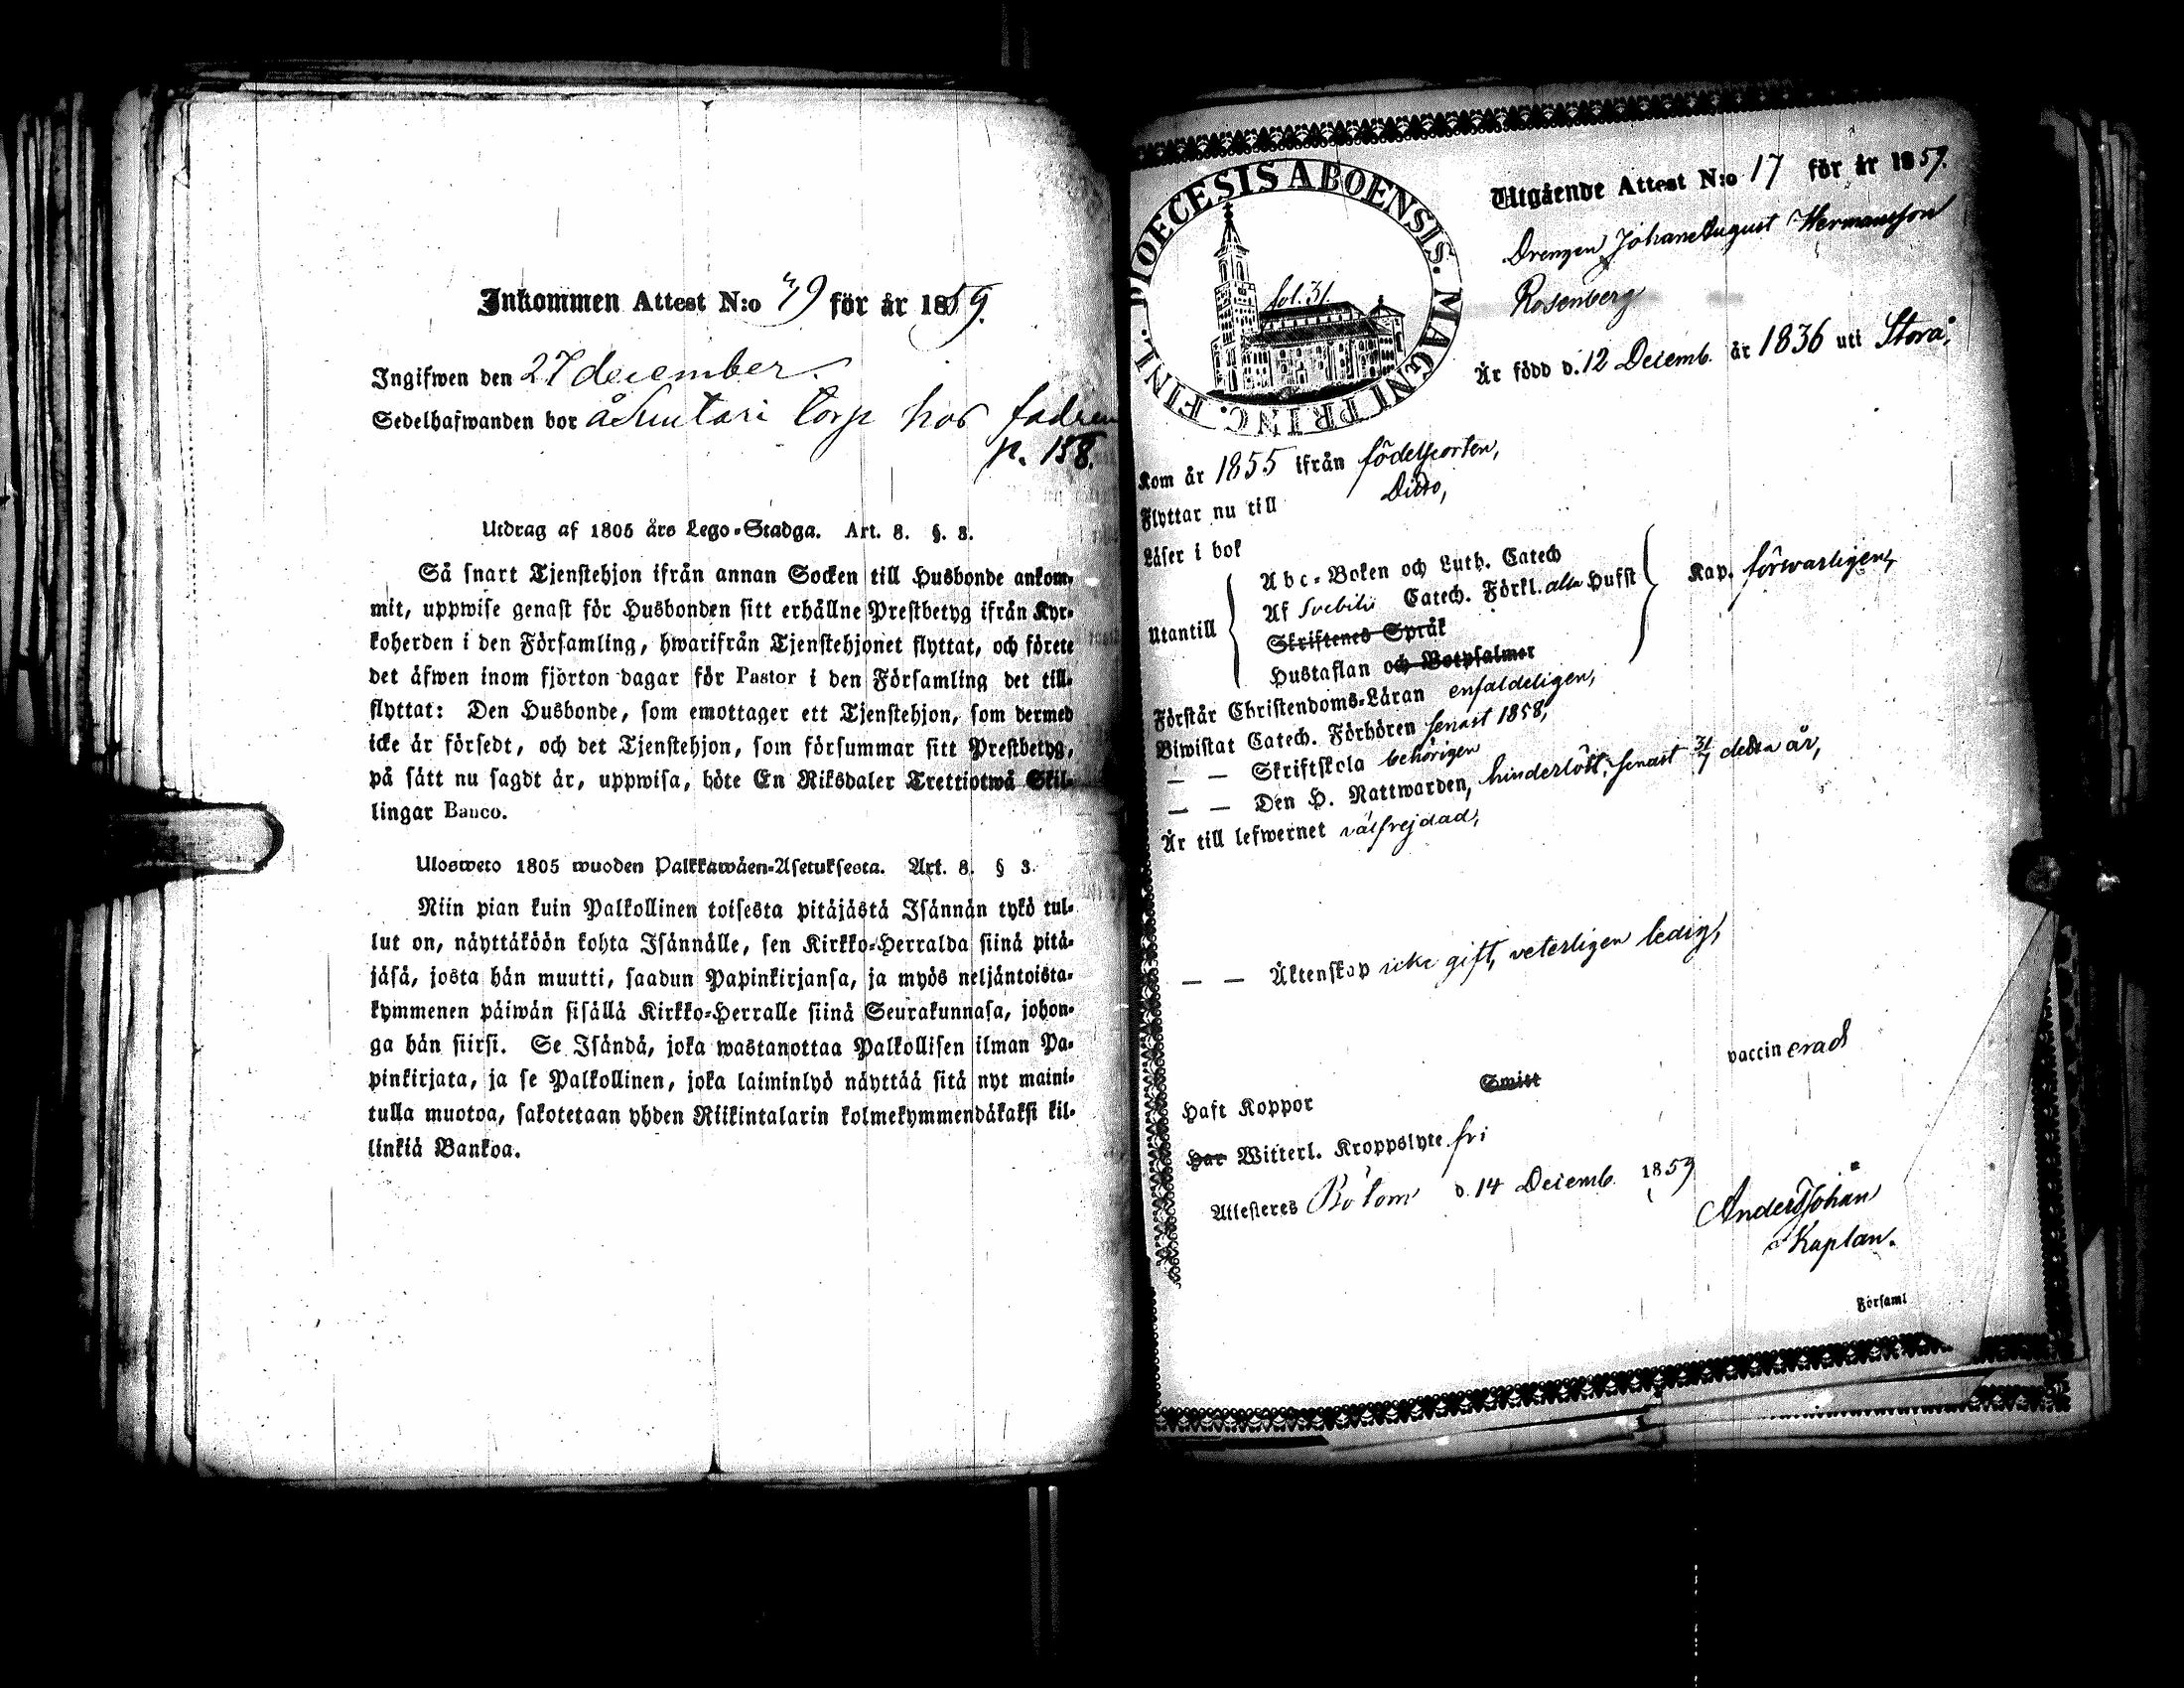 Inkommen Attest N:o 79 för år 1859.
Ingifwen den 27 december.
Sedelhafwanden bor å torp hos fadren
p. 158.
Utdrag af 1805 års Lego-Stadga. Art. 8. §. 3.
Så snart Tjenstehjon ifrån annan Socken till Husbonde ankom-
mit, uppwise genast för Husbonden sitt erhållne Prestbetyg ifrån Kyr-
koherden i den Församling, hwarifrån Tjenstehjonet flyttat, och förete
det äfwen inom fjorton dagar för Pastor i den Församling det till-
flyttat: Den Husbonde, som emottager ett Tjenstehjon, som dermed
icke är försedt, och det Tjenstehjon, som försummar sitt Prestbetyg,
på sätt nu sagdt är, uppwisa, böte En Riksdaler Trettiotwå Skil-
lingar Banco.
Ulosweto 1805 wuoden Palkkawäen-Asetuksesta. Art. 8. § 3.
Niin pian kuin Palkollinen toisesta pitäjästä Isännän tykö tul-
lut on, näyttäköön kohta Isännälle, sen Kirkko-Herralda siinä pitä-
jäsä, josta hän muutti, saadun Papinkirjansa, ja myös neljäntoista-
kymmenen päiwän sisällä Kirkko-Herralle siinä Seurakunnasa, johon-
ga hän siirsi. Se Isändä, joka wastanottaa Palkollisen ilman Pa-
pinkirjata, ja se Palkollinen, joka laiminlyö näyttää sitä nyt maini-
tulla muotoa, sakotetaan yhden Riikintalarin kolmekymmendäkaksi kil-
linkiä Bankoa.
DIOECESIS ABOENSIS. MAGNI PRINC. FINL.
fol. 31.
Utgående Attest N:o 17 för år 1859.
Drengen Johan August Hermansson
Rosenberg
Är född d. 12 Decemb. år 1836 uti Storå,
Kom år 1855 ifrån födelseorten,
Flyttar nu till Ditto,
Läser i bok
Utantill
Abc-Boken och Luth. Catech
Af Svebilii Catech. Förkl. alla Hufst
Skriftenes Språk
Hustaflan och Botpsalmer
Kap. försvarligen,
Förstår Christendoms-Läran enfaldeligen,
Biwistat Catech. Förhören senast 1858,
— — Skriftskola behörigen
— — Den H. Nattwarden, hinderlöst, senast 31/7 detta år,
Är till lefwernet välfrejdad,
— — Äktenskap icke gift, veterligen ledig,
vaccinerad
Haft Koppor Smitt
Har Witterl. Kroppslyte fri
Attesteres Bötom d. 14 Decemb. 1859
Anders Johan
Kaplan.
Församl